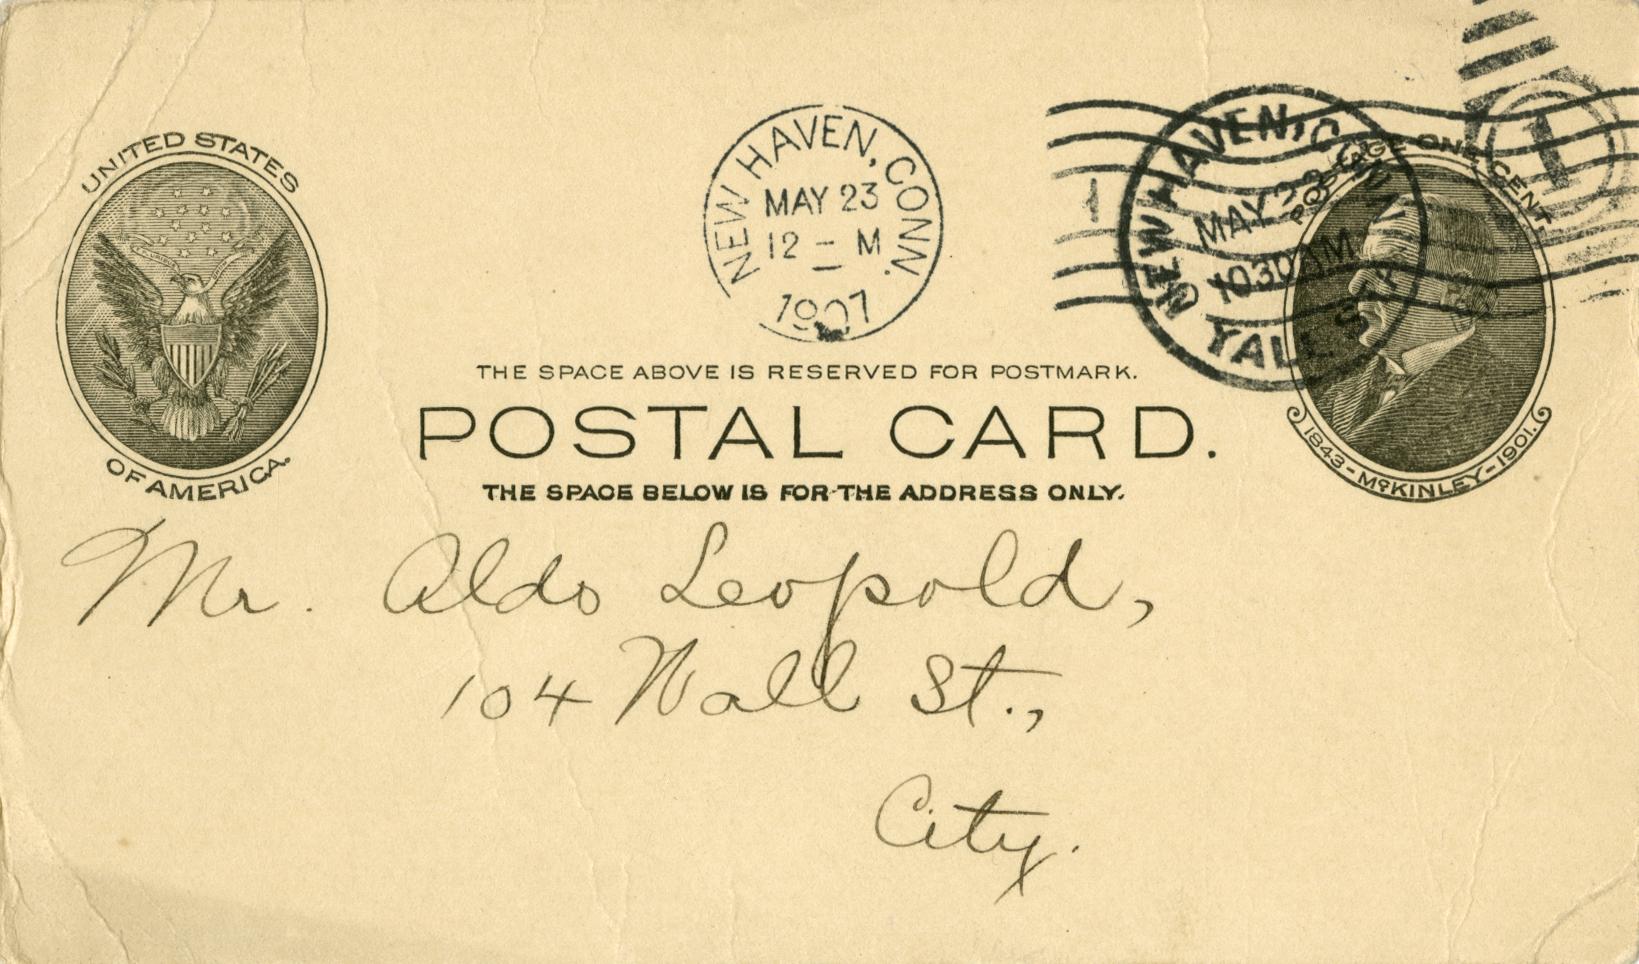 UNITED STATES
OF AMERICA.
NEW HAVEN, CONN.
MAY 23
12 - M
1907
NEW HAVEN, CONN
MAY 23
1030 AM
YALE STA
POSTAGE ONE CENT.
1
1843-McKINLEY-1901.
THE SPACE ABOVE IS RESERVED FOR POSTMARK.
POSTAL CARD.
THE SPACE BELOW IS FOR THE ADDRESS ONLY.
Mr. Aldo Leopold,
104 Wall St.,
City.